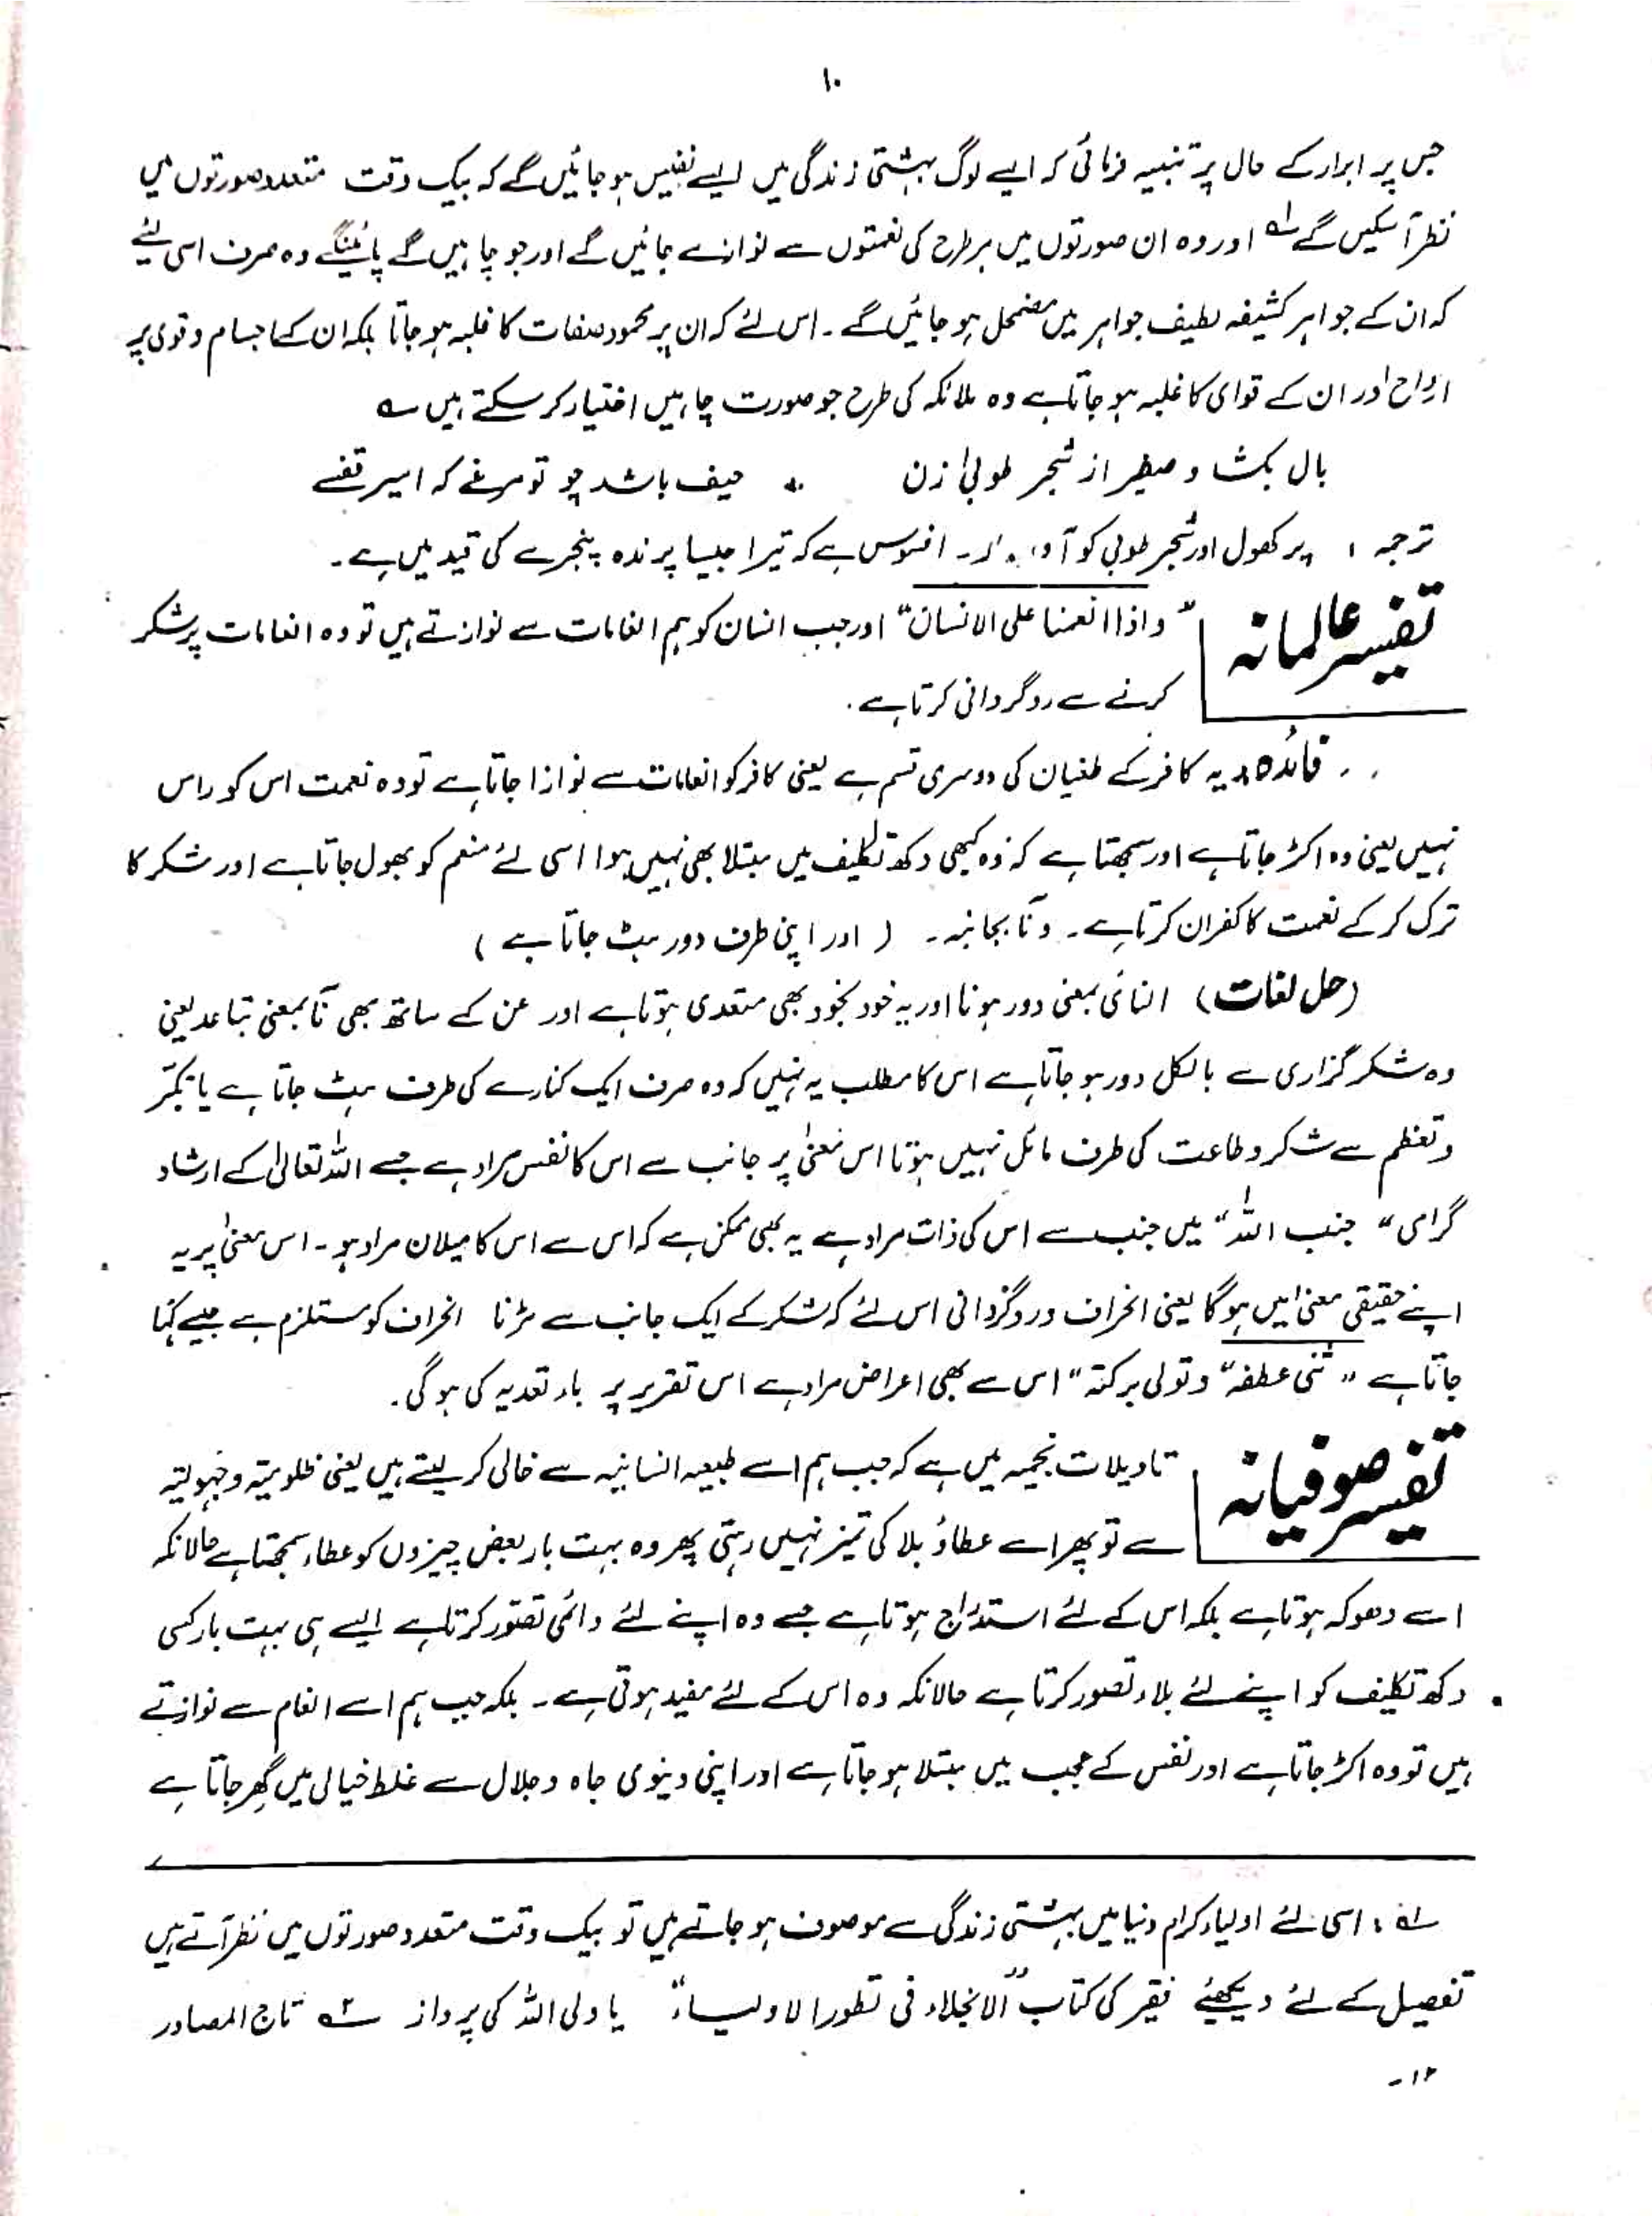 ۱۰
جس پر ابرار کے حال پر تنبیہ فرمائی کہ ایسے لوگ بہشتی زندگی میں ایسے نفیس ہو جائیں گے کہ بیک وقت متعدد صورتوں میں
نظر آ سکیں گے لہ اور وہ ان صورتوں میں ہر طرح کی نعمتوں سے نوازے جائیں گے اور جو چاہیں گے پائینگے وہ صرف اسی لیئے
کہ ان کے جواہر کثیفہ لطیف جواہر میں مضمحل ہو جائیں گے ۔ اس لئے کہ ان پر محمود صفات کا غلبہ ہو جاتا بلکہ ان کے اجسام و قوی پر
ارواح اور ان کے قوای کا غلبہ ہو جاتا ہے وہ ملائکہ کی طرح جو صورت چاہیں اختیار کر سکتے ہیں ؎
بال بکشا و صفیر از شجر طوبیٰ زن ٭ حیف باشد چو تو مرغے کہ اسیر قفسے
ترجمہ ؛ پر کھول اور شجر طوبی کو ۔ افسوس ہے کہ تیرا جیسا پرندہ پنجرے کی قید میں ہے ۔
تفسیر عالمانہ " واذا انعمنا علی الانسان " اور جب انسان کو ہم انعامات سے نوازتے ہیں تو وہ انعامات پر شکر
کرنے سے روگردانی کرتا ہے ۔
فائدہ ؛ یہ کافر کے طغیان کی دوسری قسم ہے یعنی کافر کو انعامات سے نوازا جاتا ہے تو وہ نعمت اس کو راس
نہیں یعنی وہ اکڑ جاتا ہے اور سمجھتا ہے کہ وہ کبھی دکھ تکلیف میں مبتلا بھی نہیں ہوا اسی لئے منعم کو بھول جاتا ہے اور شکر کا
ترک کر کے نعمت کا کفران کرتا ہے ۔ ونآ بجانبہ ۔ ( اور اپنی طرف دور ہٹ جاتا ہے )
(حل لغات) النائی بمعنی دور ہونا اور یہ خود بخود بھی متعدی ہوتا ہے اور عن کے ساتھ بھی نآ بمعنی تباعد یعنی
وہ شکر گزاری سے بالکل دور ہو جاتا ہے اس کا مطلب یہ نہیں کہ وہ صرف ایک کنارے کی طرف ہٹ جاتا ہے یا تکبّر
و تعظم سے شکر و طاعت کی طرف مائل نہیں ہوتا اس معنیٰ پر جانب سے اس کا نفس مراد ہے جیسے اللہ تعالیٰ کے ارشاد
گرامی " جنب اللہ " میں جنب سے اس کی ذات مراد ہے یہ بھی ممکن ہے کہ اس سے اس کا میلان مراد ہو ۔ اس معنیٰ پر یہ
اپنے حقیقی معنیٰ میں ہو گا یعنی انحراف و روگردانی اس لئے کہ شکر کے ایک جانب سے مڑنا انحراف کو مستلزم ہے جیسے کہا
جاتا ہے " ثنی عطفہ " و تولی برکنہ " اس سے بھی اعراض مراد ہے اس تقریر پر باء تعدیہ کی ہو گی ۔
تفسیر صوفیانہ تاویلات نجمیہ میں ہے کہ جب ہم اسے طبیعہ انسانیہ سے خالی کر لیتے ہیں یعنی ظلومیتہ و جہولیتہ
سے تو پھر اسے عطاؤ بلا کی تمیز نہیں رہتی پھر وہ بہت بار بعض چیزوں کو عطاء سمجھتا ہے حالانکہ
اسے دھوکہ ہوتا ہے بلکہ اس کے لئے استدراج ہوتا ہے جسے وہ اپنے لئے دائمی تصّور کرتا ہے ایسے ہی بہت بار کسی
دکھ تکلیف کو اپنے لئے بلاء تصور کرتا ہے حالانکہ وہ اس کے لئے مفید ہوتی ہے ۔ بلکہ جب ہم اسے انعام سے نوازتے
ہیں تو وہ اکڑ جاتا ہے اور نفس کے عجب میں مبتلا ہو جاتا ہے اور اپنی دینوی جاہ و جلال سے غلط خیالی میں گھِر جاتا ہے
لہ ؛ اسی لئے اولیاء کرام دنیا میں بہشتی زندگی سے موصوف ہو جاتے ہیں تو بیک وقت متعدد صورتوں میں نظر آتے ہیں
تفصیل کے لئے دیکھیئے فقیر کی کتاب "الانجلاء فی تطور الاولیاء" یا ولی اللہ کی پرواز ۲ہ تاج المصادر
۱۲ -